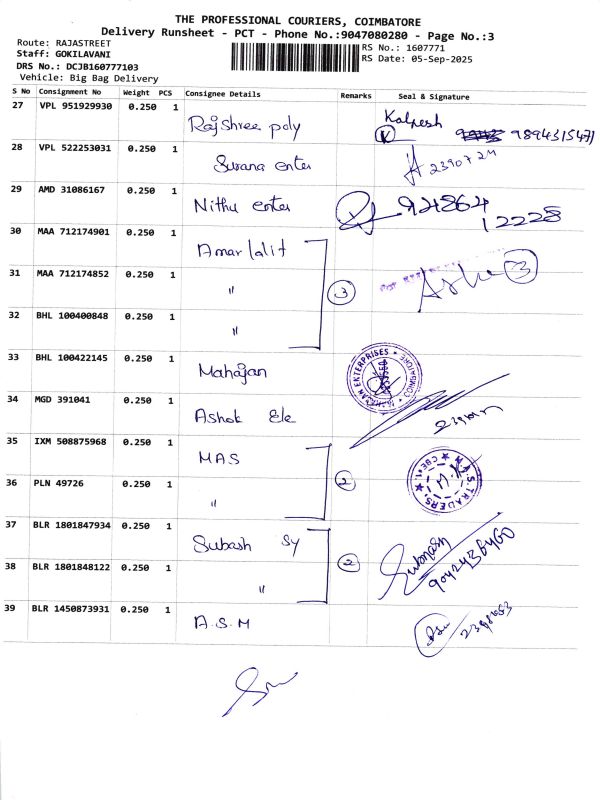 THE PROFESSIONAL COURIERS, COIMBATORE
Delivery Runsheet - PCT - Phone No.:9047080280 - Page No.:3
Route: RAJASTREET
RS No.: 1607771
Staff: GOKILAVANI
RS Date: 05-Sep-2025
DRS No.: DCJB160777103
Vehicle: Big Bag Delivery
S No Consignment No Weight PCS Consignee Details Remarks Seal & Signature
27 VPL 951929930 0.250 1 Rajshree poly Kalpesh
K 9894315471
28 VPL 522253031 0.250 1 Surana enter
29 AMD 31086167 0.250 1 Nithu enter 94864
12228
30 MAA 712174901 0.250 1 Amar lalit
31 MAA 712174852 0.250 1 " 3 3
32 BHL 100400848 0.250 1 "
33 BHL 100422145 0.250 1 Mahajan
34 MGD 391041 0.250 1 Ashok Ele
35 IXM 508875968 0.250 1 MAS
M.A.S. TRADERS, CBE-1.
36 PLN 49726 0.250 1 " 2
37 BLR 1801847934 0.250 1 Subash Sy
Subhash
38 BLR 1801848122 0.250 1 " 2
39 BLR 1450873931 0.250 1 A.S.M